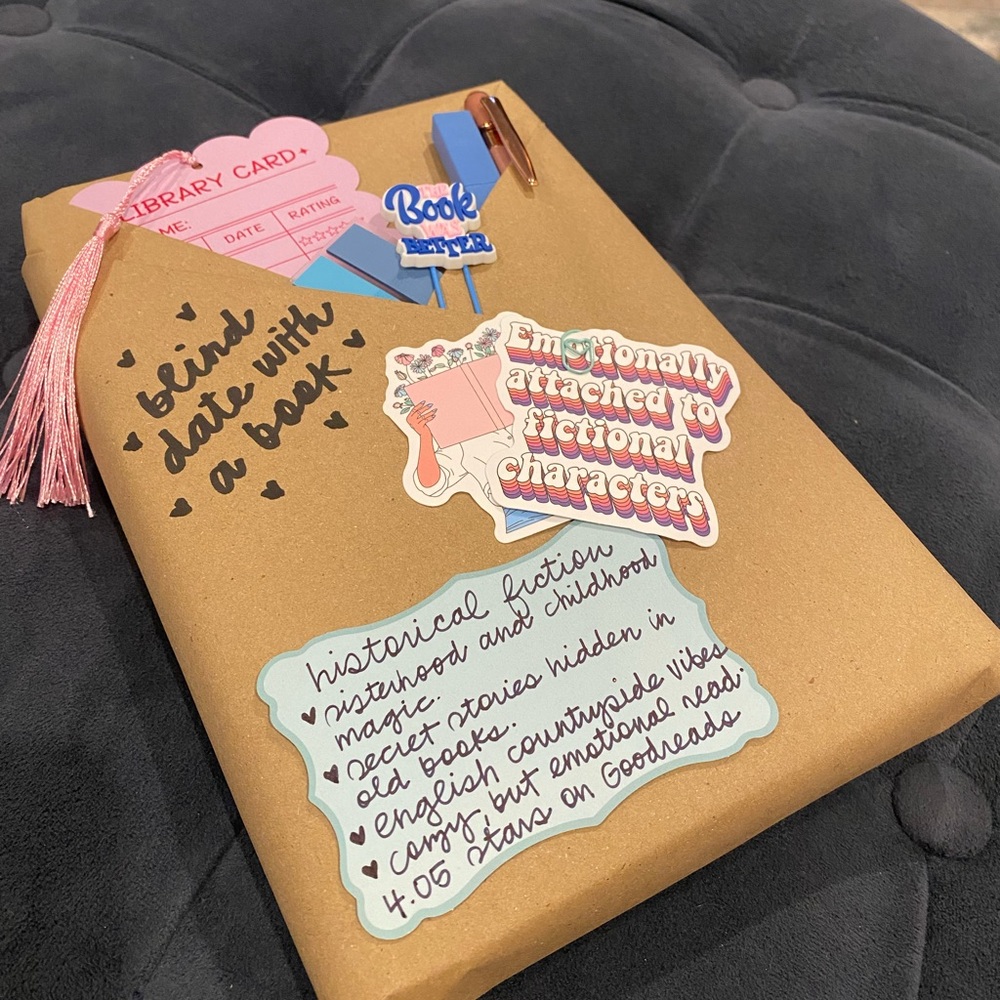 LIBRARY CARD
ME:
DATE
RATING
THE
Book
WAS
BETTER
blind
date with
a book
Emotionally
attached to
fictional
characters
historical fiction
sisterhood and childhood
magic.
secret stories hidden in
old books.
english countryside vibes
cozy, but emotional read.
4.05 stars on Goodreads